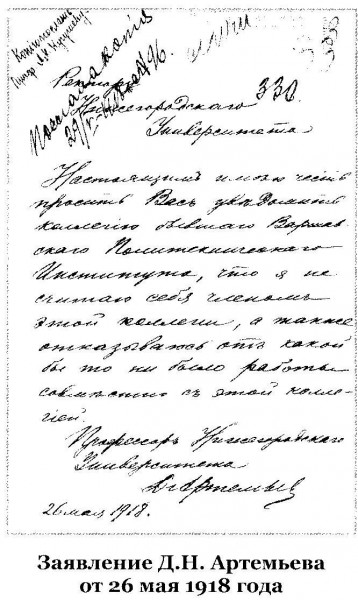 Ректору
Нижегородскаго
Университета
330.
Настоящимъ имѣю честь
просить Васъ увѣдомить
коллегію бывшаго Варшав-
скаго Политехническаго
Института, что я не
считаю себя членомъ
этой коллегіи, а также
отказываюсь отъ какой
бы то ни было работы
совмѣстно съ этой колле-
гіей.
Профессоръ Нижегородскаго
Университета
ДАртемьев
26 мая 1918.
Заявление Д.Н. Артемьева
от 26 мая 1918 года